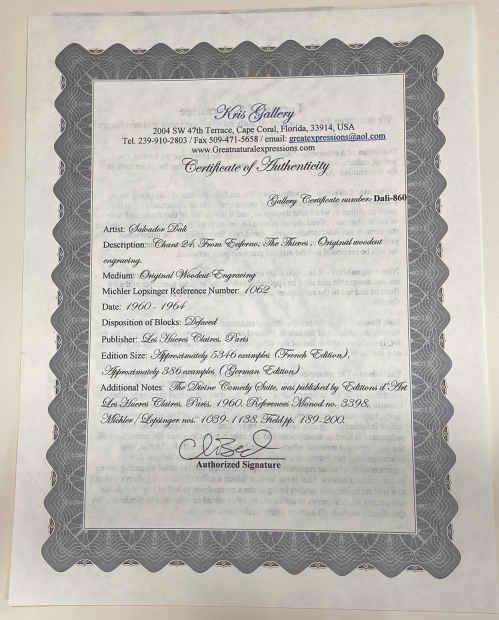 Kris Gallery
2004 SW 47th Terrace, Cape Coral, Florida, 33914, USA
Tel. 239-910-2803 / Fax 509-471-5658 / email: greatexpressions@aol.com
www.Greatnaturalexpressions.com
Certificate of Authenticity
Gallery Certificate number: Dali-860
Artist: Salvador Dali
Description: Chant 24, From Enferno; The Thieves , Original woodcut
engraving.
Medium: Original Woodcut Engraving
Michler Lopsinger Reference Number: 1062
Date: 1960 - 1964
Disposition of Blocks: Defaced
Publisher: Les Hueres Claires, Paris
Edition Size: Approximately 5346 examples (French Edition),
Approximately 386 examples, (German Edition)
Additional Notes: The Divine Comedy Suite, was published by Editions d'Art
Les Hueres Claires, Paris, 1960. References Monod no. 3398,
Michler / Lopsinger nos. 1039- 1138, Field pp. 189-200.
Authorized Signature